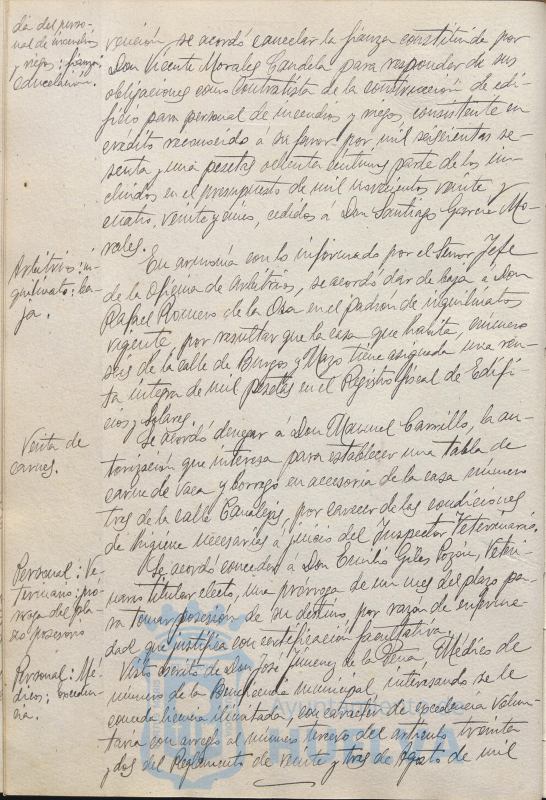 dia del perso-
nal de incendios
y riegos: fianza:
cancelación.
vención, se acordó cancelar la fianza constituida por
Don Vicente Morales Candela para responder de sus
obligaciones como Contratista de la construcción de edi-
ficio para personal de incendios y riegos, consistente en
credito reconocido á su favor por mil seiscientas se-
senta y una pesetas ochenta céntimos parte de los in-
cluidos en el presupuesto de mil novecientos veinte y
cuatro, veinte y cinco, cedidos á Don Santiago Garcia Mo-
rales.
Arbitrios: in-
quilinato: ba-
ja.
En armonía con lo informado por el señor Jefe
de la Oficina de Arbitrios, se acordó dar de baja á Don
Rafael Romero de la Osa en el padrón de inquilinatos
vigente, por resultar que la casa que habita, número
seis de la calle de Burgos y Mazo tiene asignada una ren-
ta integra de mil pesetas en el Registro fiscal de Edifi-
cios y Solares.
Venta de
carnes.
Se acordó denegar á Don Manuel Carrillo, la au-
torización que interesa para establecer una tabla de
carne de vaca y borrego en accesoria de la casa número
tres de la calle Canalejas, por carecer de las condiciones
de higiene necesarias á juicio del Inspector Veterinario.
Personal: Ve-
terinario: pró-
rroga del pla-
zo posesorio
Se acordó conceder á Don Emilio Giles Pozón, Veteri-
nario titular electo, una prorroga de un mes del plazo pa-
ra tomar posesión de su destino por razón de enferme-
dad que justifica con certificación facultativa.
Personal: Mé-
dicos: exceden-
cia.
Visto escrito de Don José Jimenez de la Peña, Médico de
número de la Beneficencia municipal, interesando se le
conceda licencia ilimitada, con carácter de excedencia volun-
taria con arreglo al número tercero del articulo treinta
y dos del Reglamento de veinte y tres de Agosto de mil
Ayuntamiento de
HUELVA